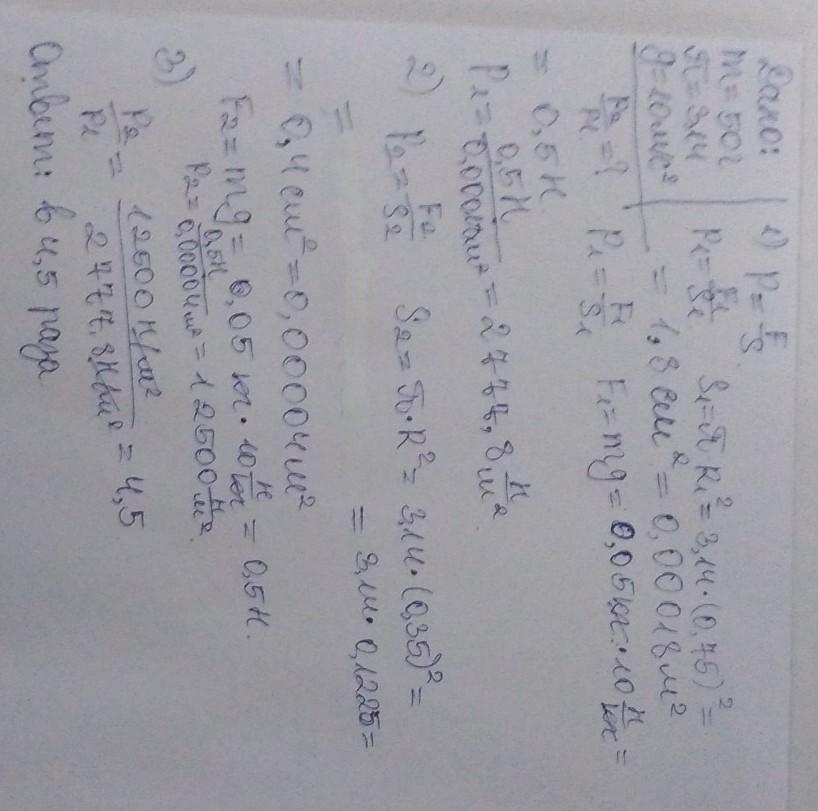 Дано:
m = 50г
π = 3,14
g = 10 м/с²
P₂/P₁ = ?
1) P = F/S
P₁ = F₁/S₁ S₁ = π R₁² = 3,14 · (0,75)² =
= 1,8 см² = 0,00018 м²
P₁ = F₁/S₁ F₁ = mg = 0,05 кг · 10 Н/кг =
= 0,5 Н
P₁ = 0,5Н/0,00018м² = 2777,8 Н/м²
2) P₂ = F₂/S₂ S₂ = π · R² = 3,14 · (0,35)² =
= = 3,14 · 0,1225 =
= 0,4 см² = 0,00004 м²
F₂ = mg = 0,05 кг · 10 Н/кг = 0,5 Н.
P₂ = 0,5Н/0,00004м² = 12500 Н/м².
3) P₂/P₁ = 12500 Н/м²/2777,8Н/м² = 4,5
Ответ: в 4,5 раза